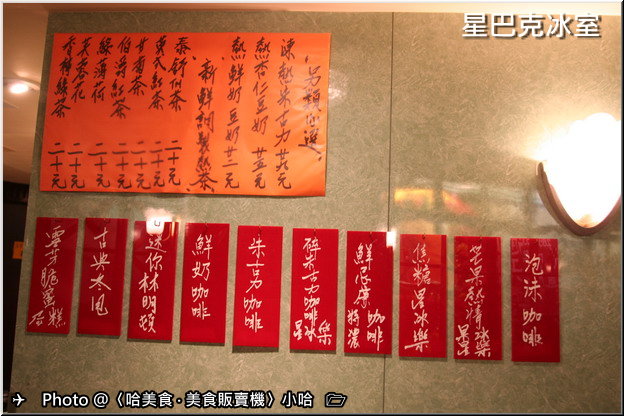 星巴克冰室
另類心選
疎熱朱古力 廿六元
熱杏仁豆奶 廿五元
熱鮮奶豆奶 廿二元
新鮮調製熱茶
泰舒伯茶 二十元
英式紅茶 二十元
甘菊茶 二十元
伯爵紅茶 二十元
綠薄荷 二十元
芙蓉花 二十元
香特綠茶 二十元
泡沫咖啡
芒果熱情星星冰樂
焦糖星冰樂
鮮忌廉特濃咖啡
碎朱古力咖啡星冰樂
朱古力咖啡
鮮奶咖啡
迷你林明頓
古典冬甩
雲芽脆薯糕
Photo @〈哈美食‧美食販賣機〉小哈